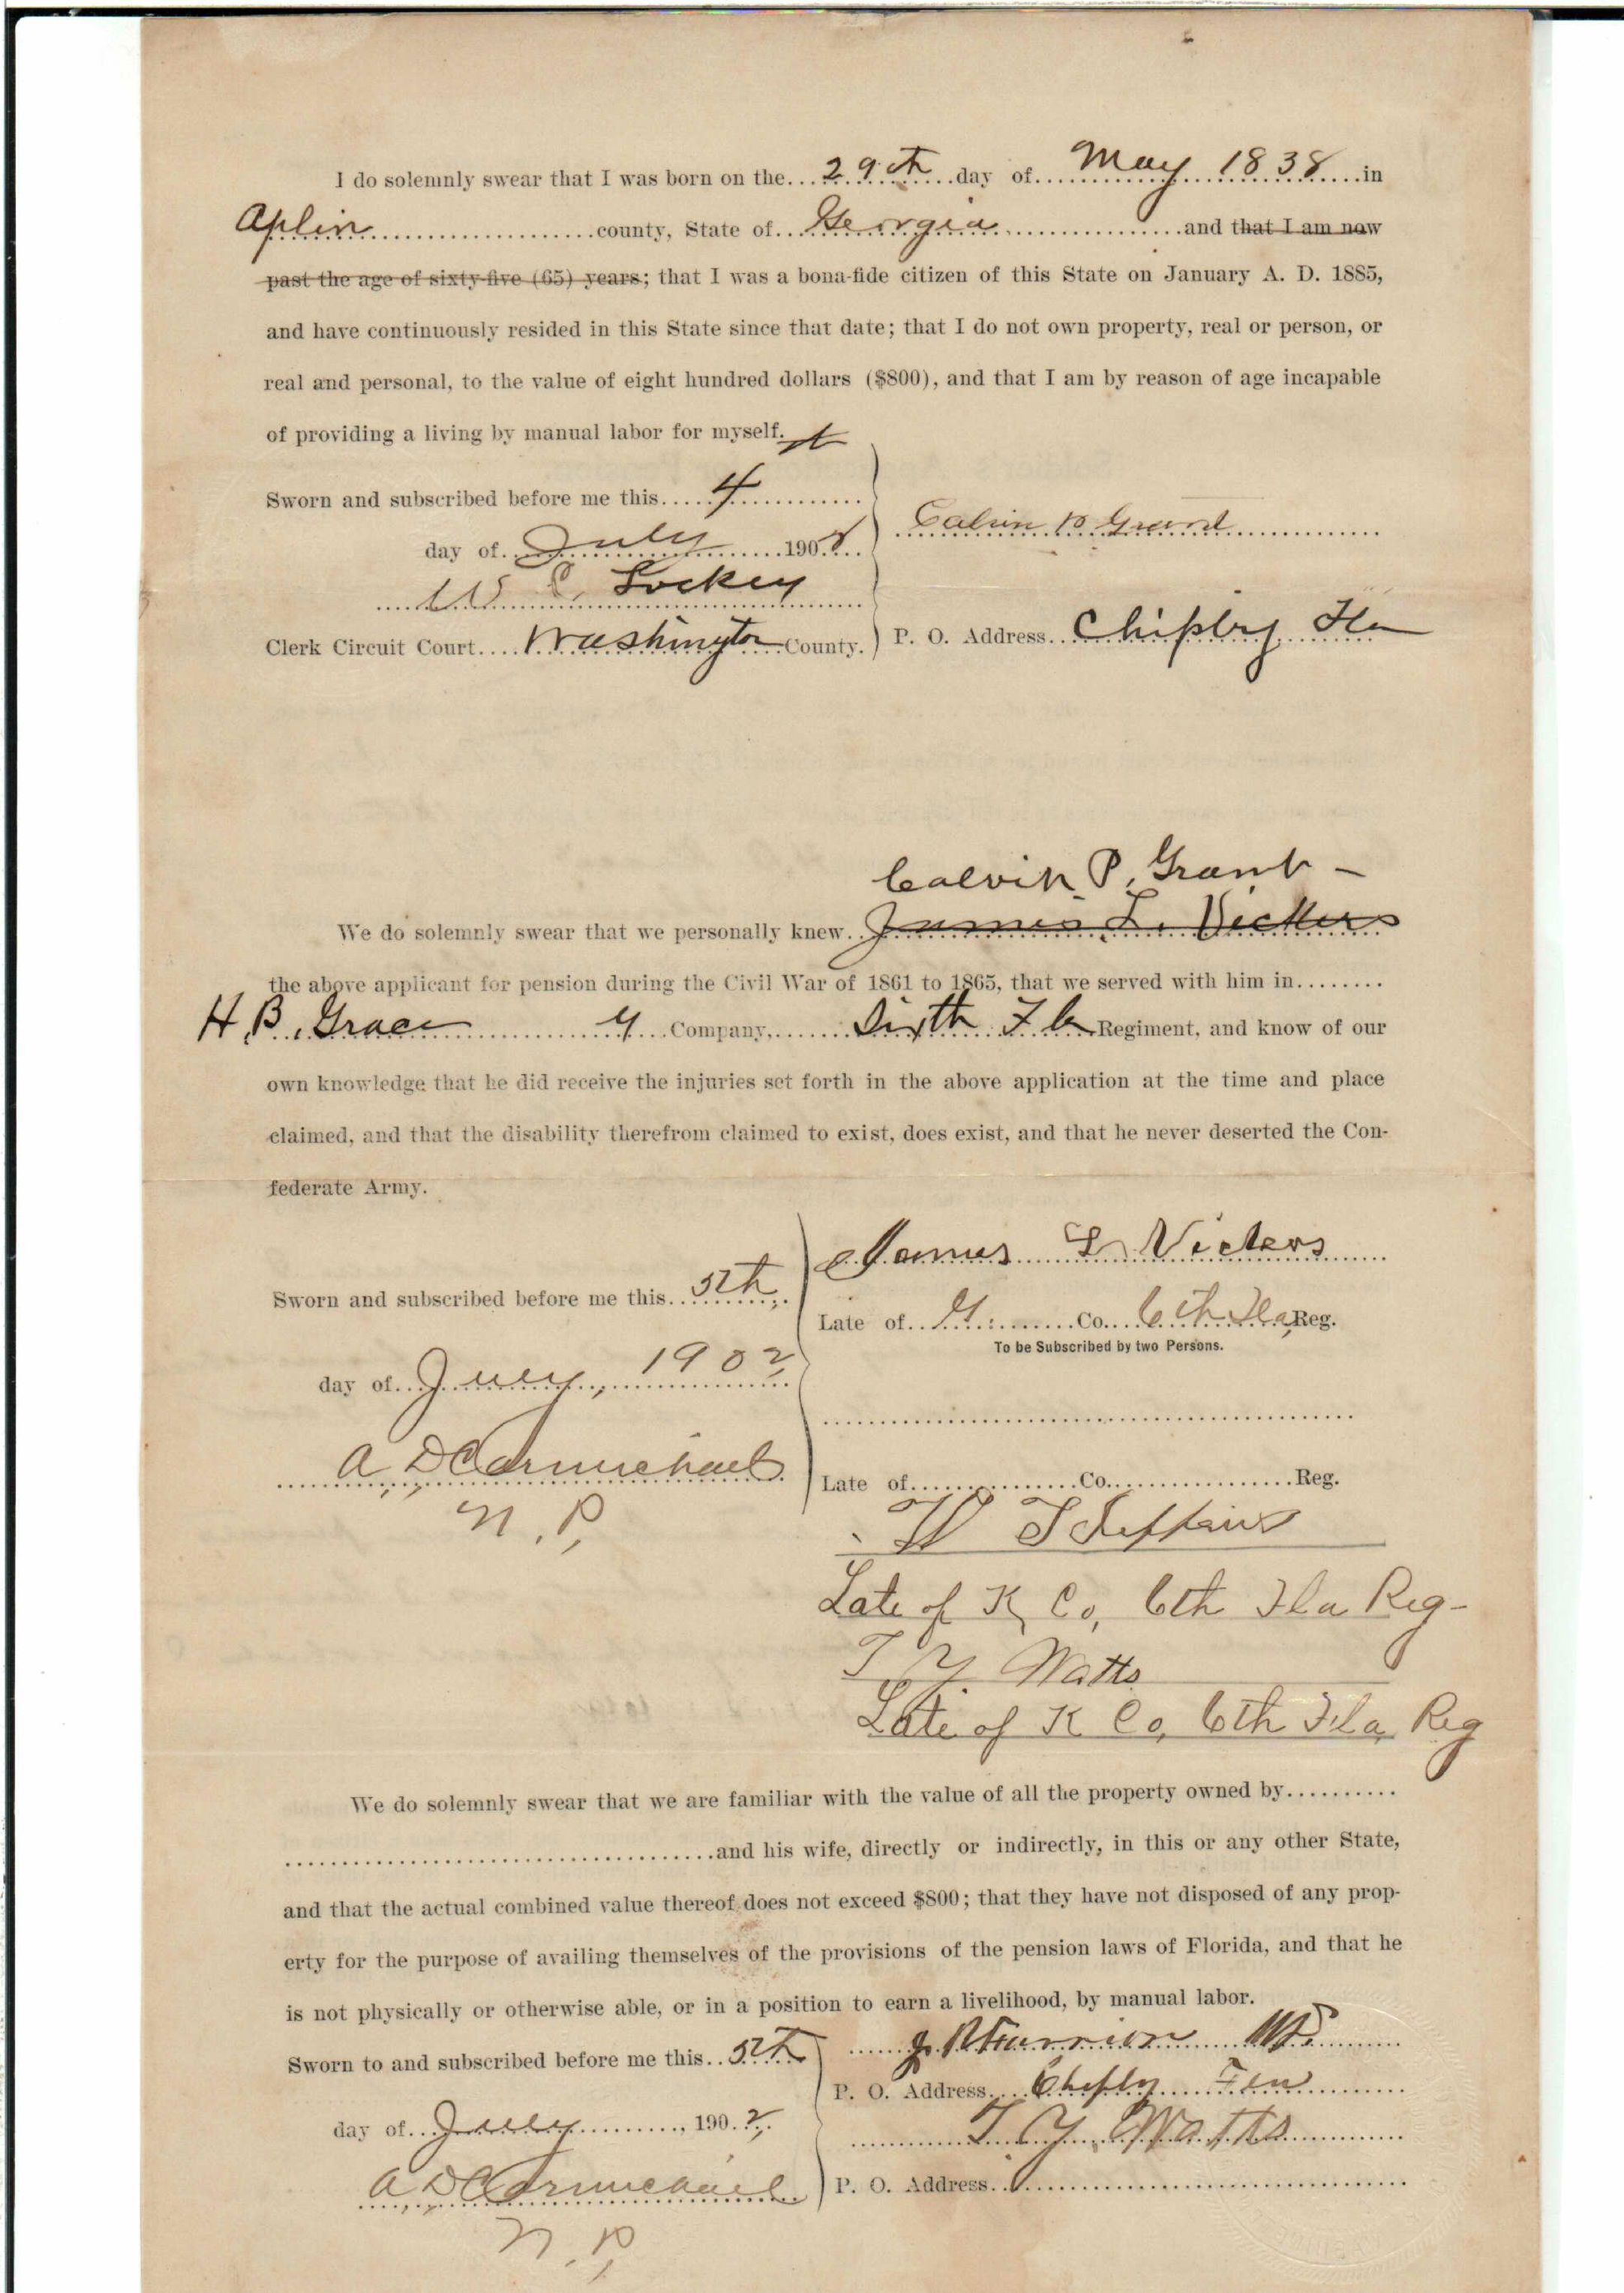 I do solemnly swear that I was born on the...29th...day of...May 1838...in
Aplin...county, State of...Georgia...and that I am now
past the age of sixty-five (65) years; that I was a bona-fide citizen of this State on January A. D. 1885,
and have continuously resided in this State since that date; that I do not own property, real or person, or
real and personal, to the value of eight hundred dollars ($800), and that I am by reason of age incapable
of providing a living by manual labor for myself.
Sworn and subscribed before me this...4
day of...July...1902
Calvin P Grant
W C Lockey
Clerk Circuit Court...Washington...County.
P. O. Address...Chipley Fla
Calvin P. Grant -
We do solemnly swear that we personally knew..James L. Vickers
the above applicant for pension during the Civil War of 1861 to 1865, that we served with him in........
H. B. Grace...G...Company,...Sixth Fla Regiment, and know of our
own knowledge that he did receive the injuries set forth in the above application at the time and place
claimed, and that the disability therefrom claimed to exist, does exist, and that he never deserted the Con-
federate Army.
James L Vickers
Sworn and subscribed before me this...5th
Late of...G...Co...6th Fla, Reg.
To be Subscribed by two Persons.
day of...July, 1902
A. D. Carmichael
Late of...Co...Reg.
N. P,
W T
Late of K Co, 6th Fla Reg-
T Y Watts
Late of K Co, 6th Fla, Reg
We do solemnly swear that we are familiar with the value of all the property owned by..........
...and his wife, directly or indirectly, in this or any other State,
and that the actual combined value thereof does not exceed $800; that they have not disposed of any prop-
erty for the purpose of availing themselves of the provisions of the pension laws of Florida, and that he
is not physically or otherwise able, or in a position to earn a livelihood, by manual labor.
Sworn to and subscribed before me this..5th
P. O. Address...Chipley Fla
day of...July..., 1902,
T. Y. Watts
A. D. Carmichael
P. O. Address...
N. P,